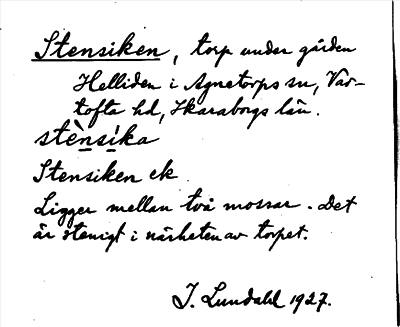 Stensiken, torp under gården
Helliden i Agnetorps sn, Var-
tofta hd, Skaraborgs län.
stènsíka
Stensiken ek
Ligger mellan två mossar. Det
är stenigt i närheten av torpet.
I. Lundahl 1927.